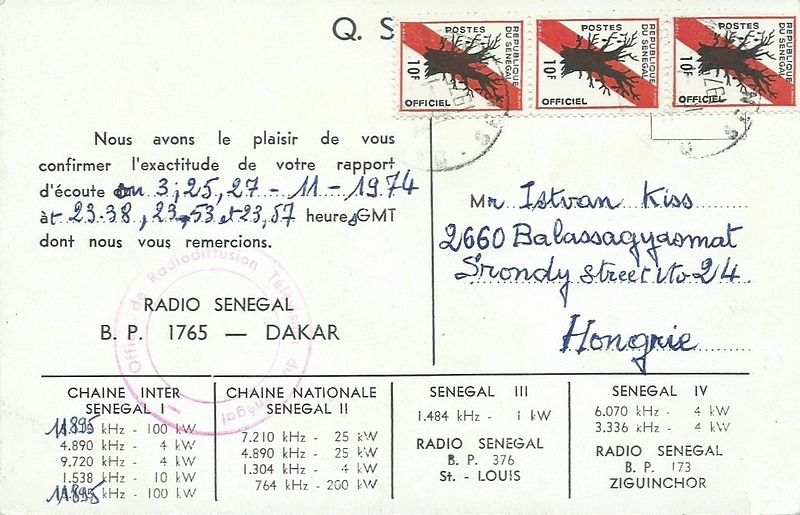 Q. S
POSTES
REPUBLIQUE
DU SENEGAL
10F
OFFICIEL
POSTES
REPUBLIQUE
DU SENEGAL
10F
OFFICIEL
POSTES
REPUBLIQUE
DU SENEGAL
10F
OFFICIEL
Nous avons le plaisir de vous
confirmer l'exactitude de votre rapport
d'écoute 3;25,27 - 11 - 1974
à 23.38, 23,53 et 23,57 heures GMT
dont nous vous remercions.
Mr Istvan Kiss
2660 Balassagyaomat
Srondy street ito 24
Hongrie
Office de Radiodiffusion Télévision du Sénégal
RADIO SENEGAL
B. P. 1765 — DAKAR
CHAINE INTER
SENEGAL I
11895 kHz - 100 kW
4.890 kHz - 4 kW
9.720 kHz - 4 kW
1.538 kHz - 10 kW
11895 kHz - 100 kW
CHAINE NATIONALE
SENEGAL II
7.210 kHz - 25 kW
4.890 kHz - 25 kW
1.304 kHz - 4 kW
764 kHz - 200 kW
SENEGAL III
1.484 kHz - 1 kW
RADIO SENEGAL
B. P. 376
St. - LOUIS
SENEGAL IV
6.070 kHz - 4 kW
3.336 kHz - 4 kW
RADIO SENEGAL
B. P. 173
ZIGUINCHOR